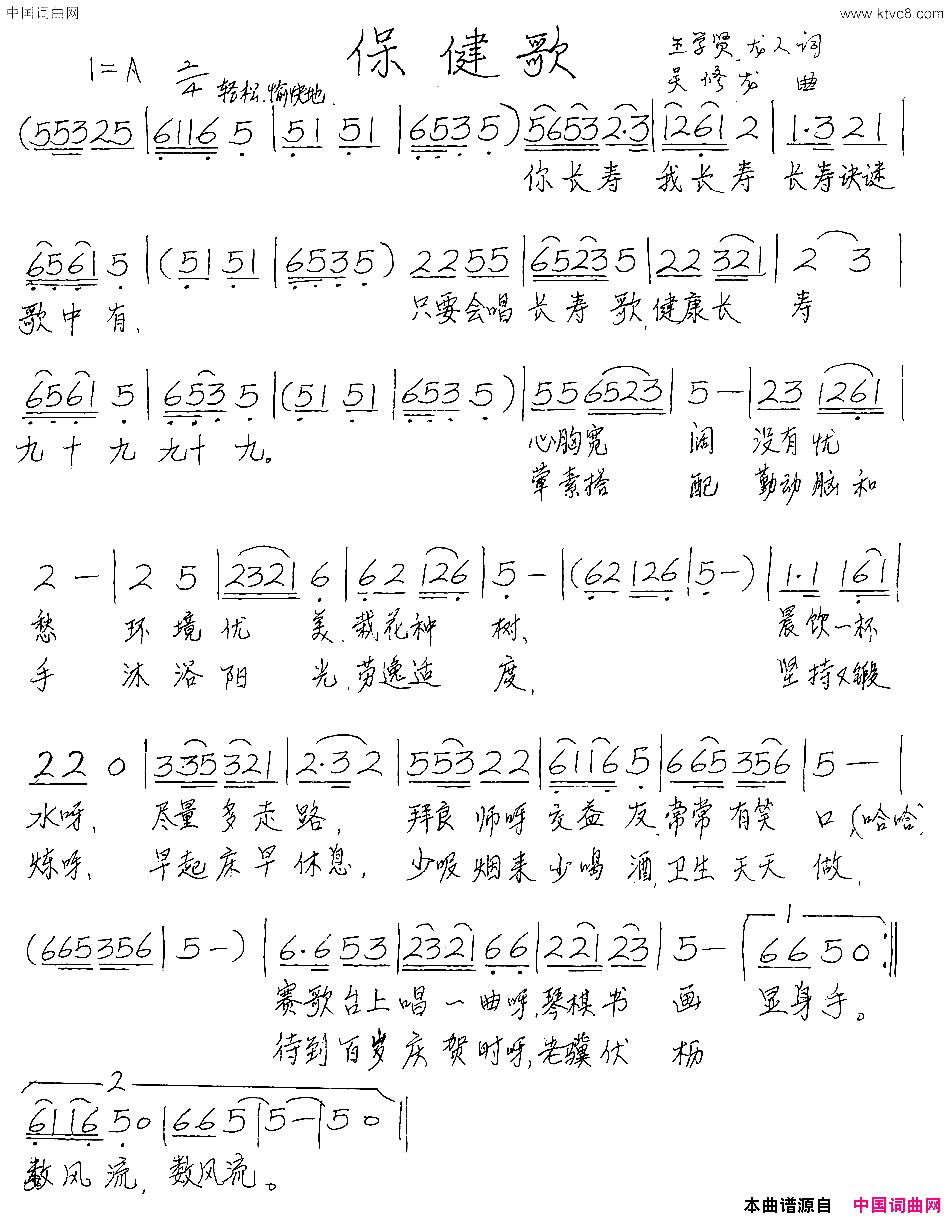 中国词曲网 www.ktvc8.com
保健歌
1=A 2/4 轻松.愉快地
王学贤.龙人词
吴修龙 曲
(55325|6116 5|51 51|6535)|56532·3|1261 2|1·3 21|
你长寿 我长寿 长寿诀谜
6561 5|(51 51|6535)|2255|65235|22 321|2 3|
歌中有, 只要会唱长寿歌,健康长 寿
6561 5|653 5|(51 51|653 5)|55 6523|5-|23 1261|
九十九 九十九。 心胸宽 阔 没有忧
荤素搭 配 勤动脑和
2-|2 5|2321 6|62 126|5-|(62 126|5-)|1·1 161|
愁 环境优 美,栽花种 树、 晨饮一杯
手 沐浴阳 光,劳逸适 度, 坚持又锻
22 0|335321|2·32|553 22|6116 5|665356|5-|
水呀、 尽量多走路, 拜良师呀交益友,常常有笑 口(哈哈)
炼呀、 早起床早休息, 少吸烟来少喝酒,卫生天天 做,
(665356|5-)|6·6 53|2321 66|221 23|5-|1 66 50:||
赛歌台上唱一曲呀,琴棋书 画 显身手。
待到百岁庆贺时呀,老骥伏 枥
2
6116 50|66 5|5-|5 0||
数风流, 数风流。
本曲谱源自 中国词曲网